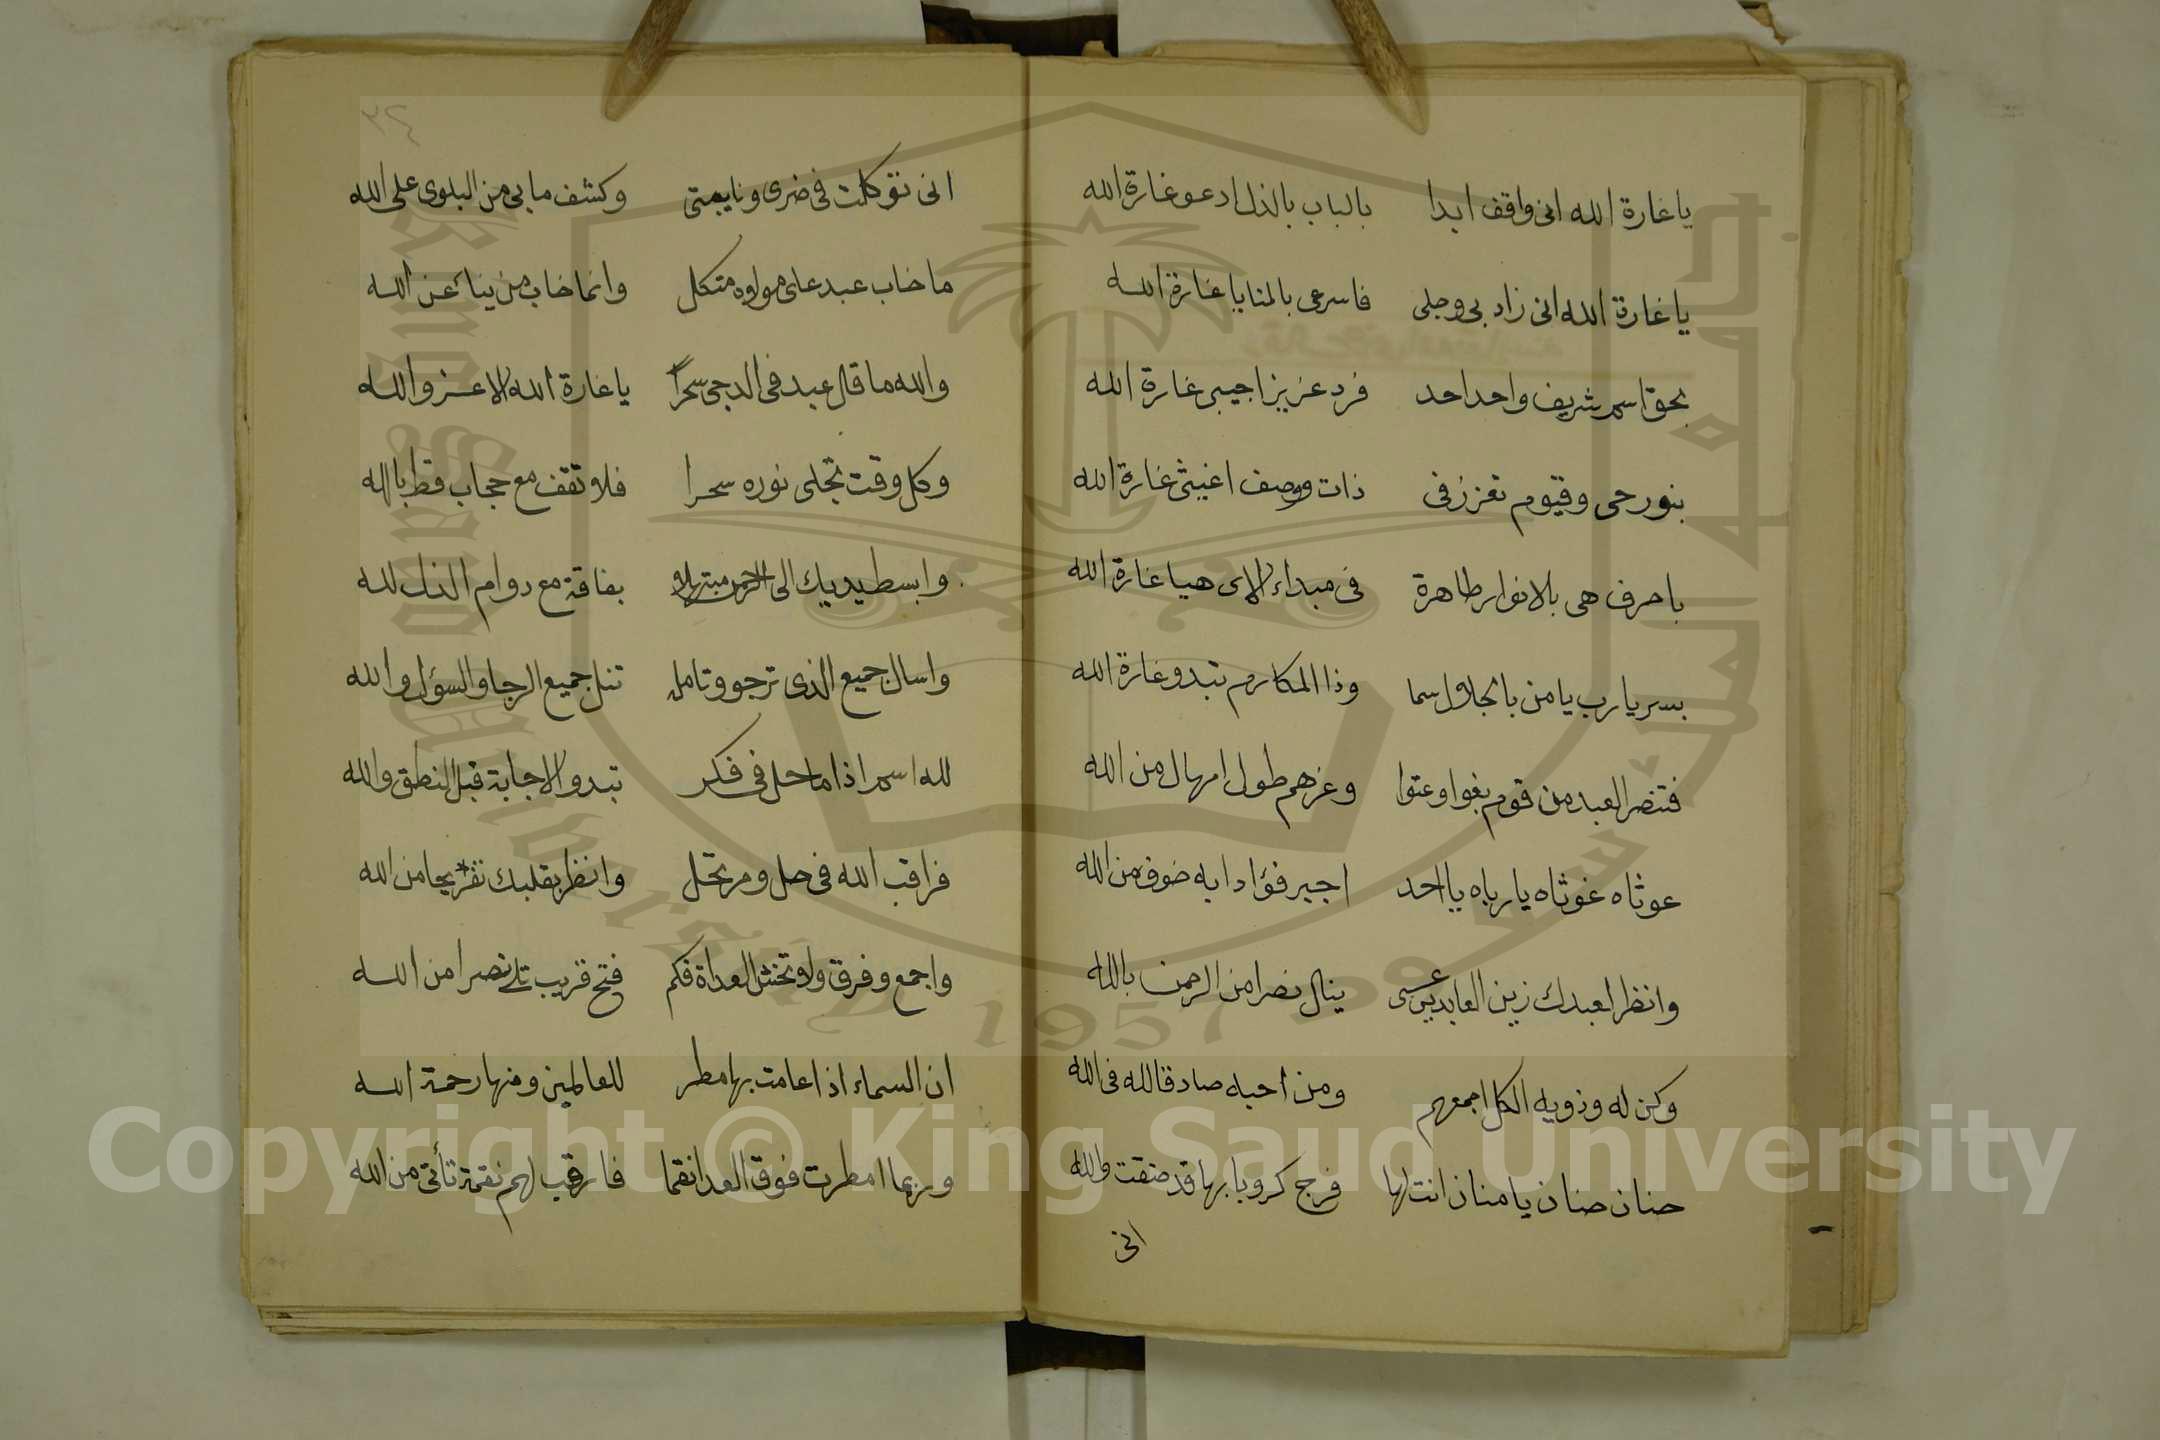 يا غارة الله انى واقف ابدا بالباب بالذل ادعو غارة الله
يا غارة الله انى زاد بى وجلى فاسرعى بالمنايا غارة الله
بحق اسم شريف واحد احد فرد عزيز اجيبى غارة الله
بنور حى وقيوم تعزز فى ذات ووصف اغيثى غارة الله
باحرف هى بالانوار ظاهرة فى مبداء الاى هيا غارة الله
بسر يارب يا من بالجلال سما وذا المكارم تبدو غارة الله
فتنصر العبد من قوم بغوا وعتوا وغرهم طول امهال من الله
عوثاه غوثاه يا رباه يا احد اجير فؤادا به خوف من الله
وانظر لعبدك زين العابدين عسى ينال نصرا من الرحمن بالله
وكن له وذويه الكل اجمعهم ومن احبه صادقا لله فى الله
حنان حنان يا منان انت لها فرج كروبا بها قد ضقت والله
انى
٣٤
انى توكلت فى ضرى ونايبتى وكشف ما بى من البلوى على الله
ما خاب عبد على مولاه متكل وانما خاب من ينأ عن الله
والله ما قال عبد فى الدجى سحرًا يا غارة الله الا عز والله
وكل وقت تجلى نوره سحرا فلا تقف مع حجاب قط بالله
وابسط يديك الى الرحمن مبتهلا بفاقة مع دوام الذل لله
واسال جميع الذى ترجو وتامله تنل جميع الرجا والسؤل والله
لله اسم اذا ما حل فى فكر تبدو الاجابة قبل النطق والله
فراقب الله فى حل ومرتحل وانظر بقلبك تفريجا من الله
واجمع وفرق ولا تخش العداة فكم فتح قريب تلى نصرا من الله
ان السماء اذا عامت بها مطر للعالمين ومنها رحمة الله
وربما امطرت فوق العدا نقما فارقب لهم نقمة تأتى من الله
جامعة الملك سعود
King Saud University
1957
Copyright © King Saud University